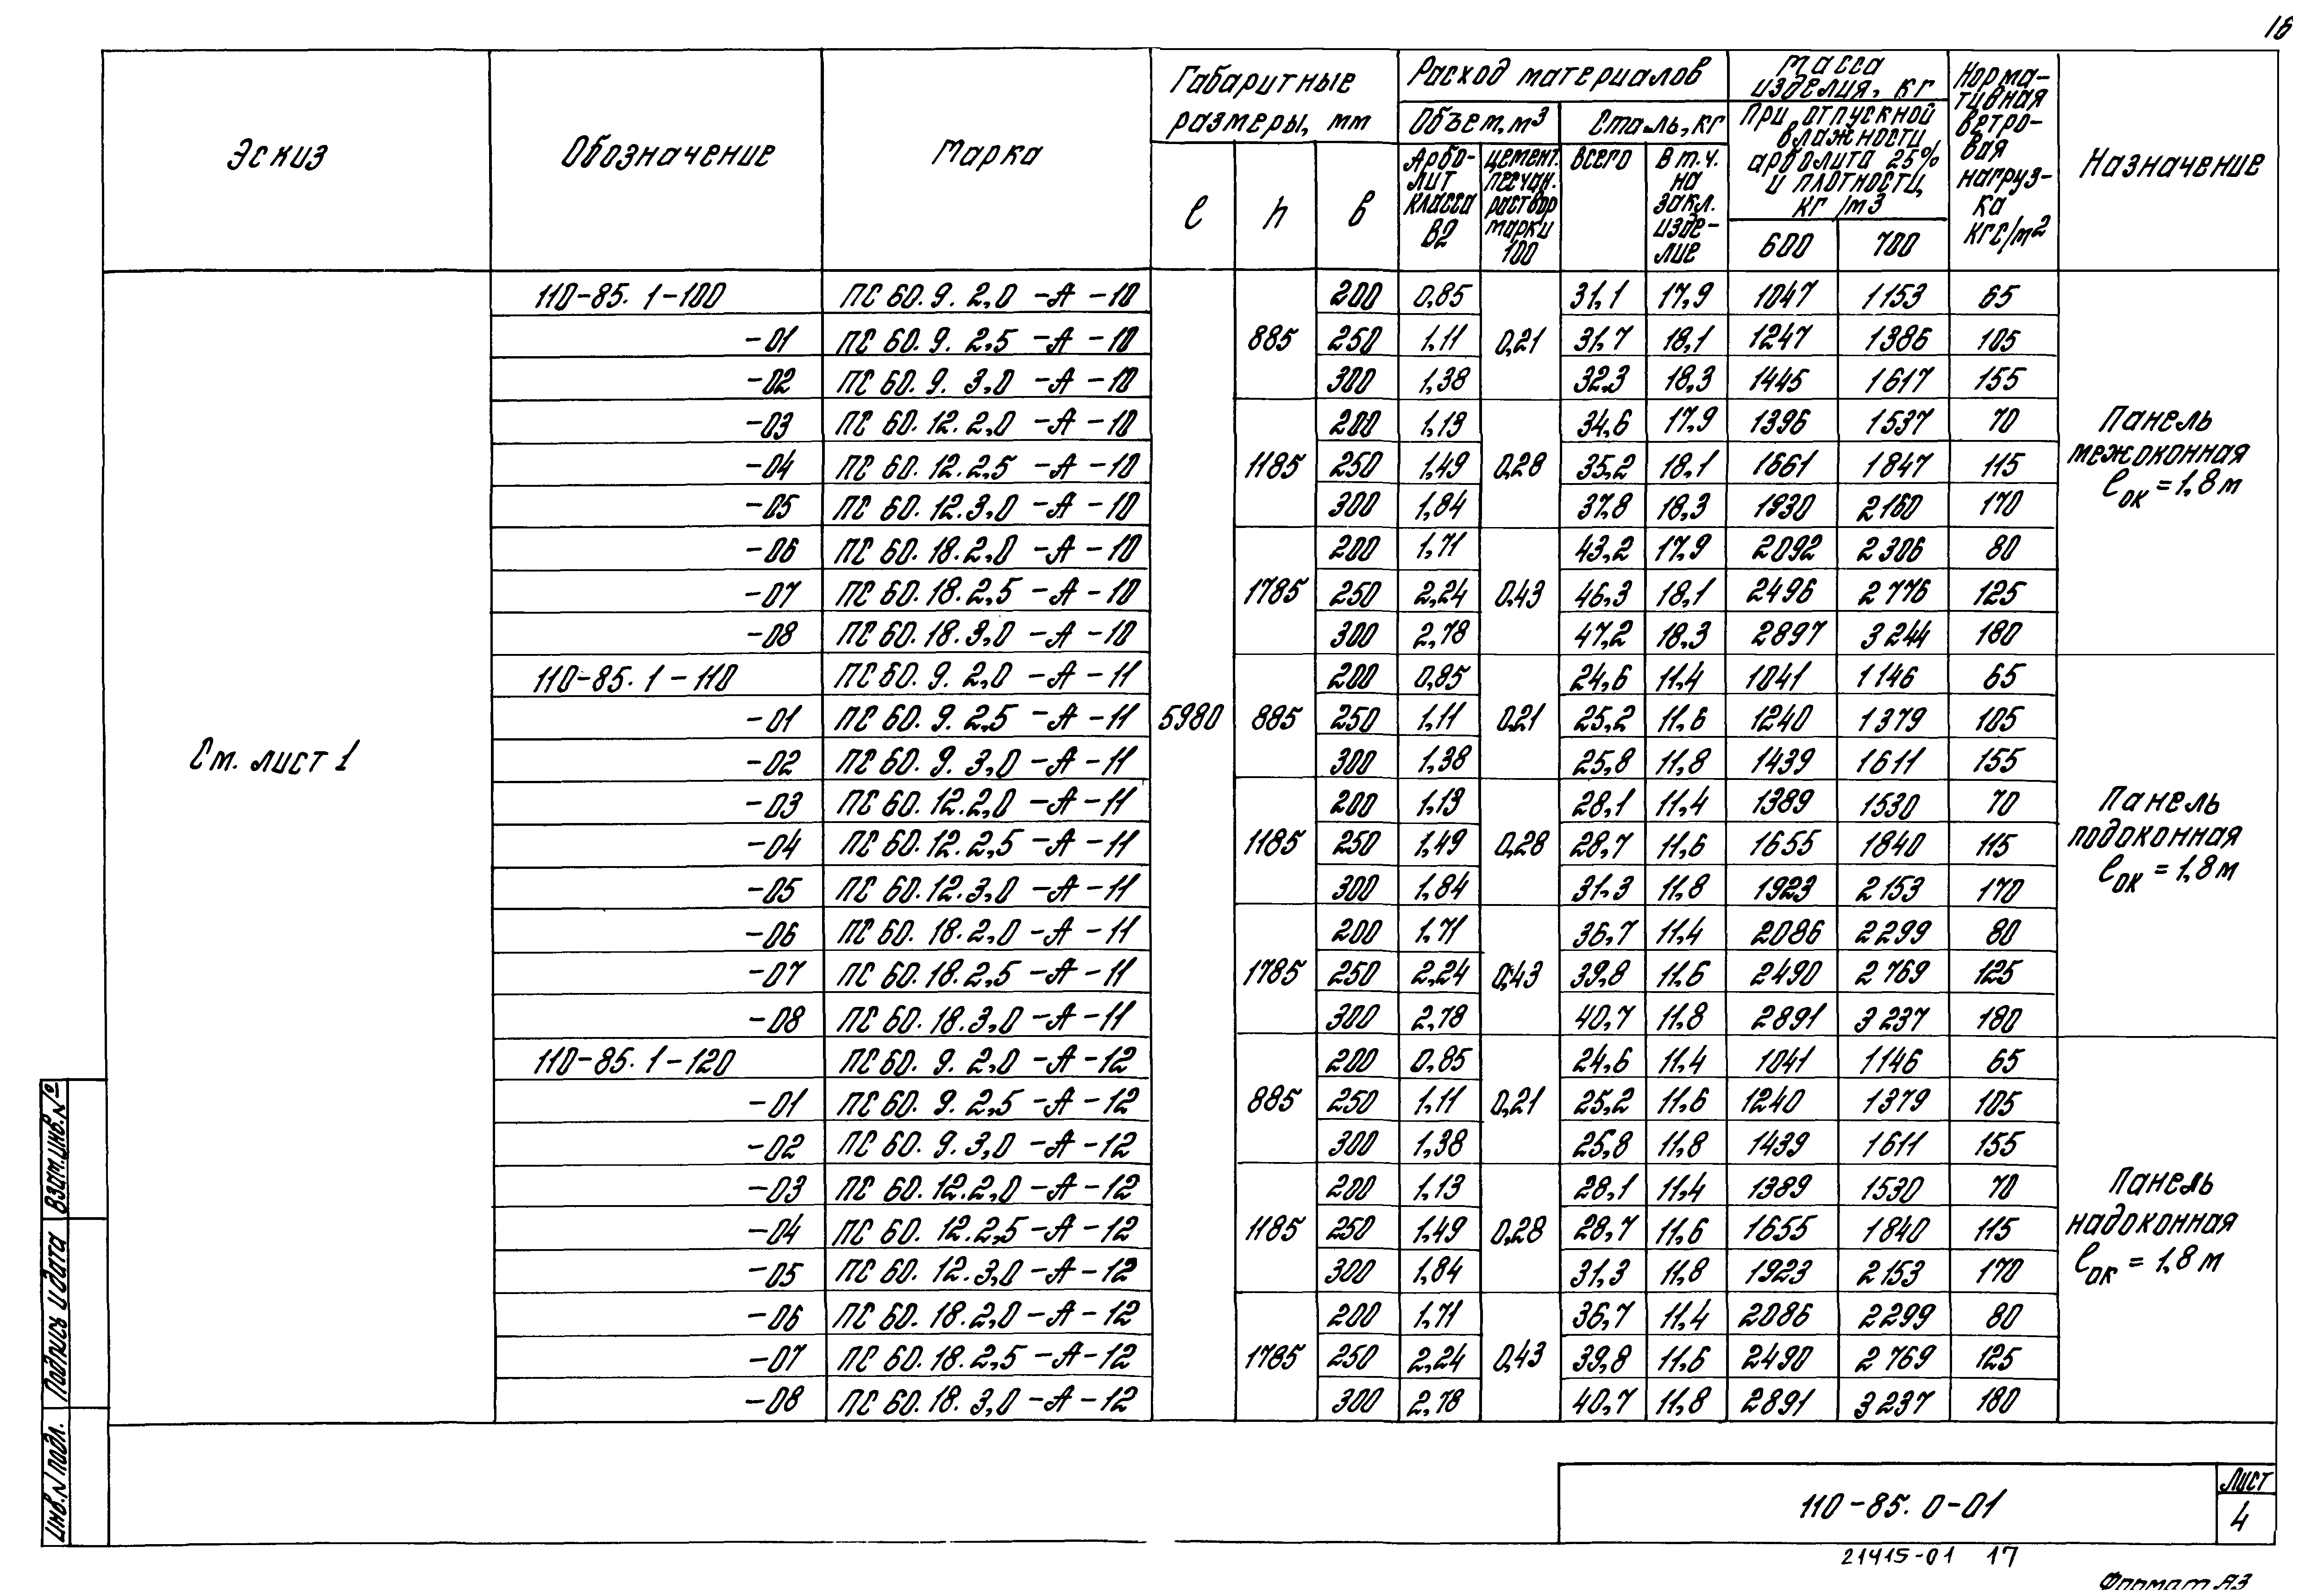 16
Эскиз
Обозначение
Марка
Габаритные размеры, мм
l
h
b
Расход материалов
Объем, м3
Арбо-
лит
класса
В2
цемент.
песчан.
раствор
марки
100
Сталь, кг
всего
в т.ч.
на
закл.
изде-
лие
Масса
изделия, кг
При отпускной
влажности
арболита 25%
и плотности,
кг/м3
600
700
Норма-
тивная
ветро-
вая
нагруз-
ка
кгс/м2
Назначение
110-85.1-100 ПС 60.9.2,0-А-10 200 0,85 31,1 17,9 1047 1153 65
-01 ПС 60.9.2,5-А-10 885 250 1,11 0,21 31,7 18,1 1247 1386 105
-02 ПС 60.9.3,0-А-10 300 1,38 32,3 18,3 1445 1617 155
-03 ПС 60.12.2,0-А-10 200 1,13 34,6 17,9 1396 1537 70
-04 ПС 60.12.2,5-А-10 1185 250 1,49 0,28 35,2 18,1 1661 1847 115
-05 ПС 60.12.3,0-А-10 300 1,84 37,8 18,3 1930 2160 170
-06 ПС 60.18.2,0-А-10 200 1,71 43,2 17,9 2092 2306 80
-07 ПС 60.18.2,5-А-10 1785 250 2,24 0,43 46,3 18,1 2496 2776 125
-08 ПС 60.18.3,0-А-10 300 2,78 47,2 18,3 2897 3244 180
Панель
межоконная
lок = 1,8 м
110-85.1-110 ПС 60.9.2,0-А-11 200 0,85 24,6 11,4 1041 1146 65
-01 ПС 60.9.2,5-А-11 5980 885 250 1,11 0,21 25,2 11,6 1240 1379 105
См. лист 1 -02 ПС 60.9.3,0-А-11 300 1,38 25,8 11,8 1439 1611 155
-03 ПС 60.12.2,0-А-11 200 1,13 28,1 11,4 1389 1530 70
-04 ПС 60.12.2,5-А-11 1185 250 1,49 0,28 28,7 11,6 1655 1840 115
-05 ПС 60.12.3,0-А-11 300 1,84 31,3 11,8 1923 2153 170
-06 ПС 60.18.2,0-А-11 200 1,71 36,7 11,4 2086 2299 80
-07 ПС 60.18.2,5-А-11 1785 250 2,24 0,43 39,8 11,6 2490 2769 125
-08 ПС 60.18.3,0-А-11 300 2,78 40,7 11,8 2891 3237 180
Панель
подоконная
lок = 1,8 м
110-85.1-120 ПС 60.9.2,0-А-12 200 0,85 24,6 11,4 1041 1146 65
-01 ПС 60.9.2,5-А-12 885 250 1,11 0,21 25,2 11,6 1240 1379 105
-02 ПС 60.9.3,0-А-12 300 1,38 25,8 11,8 1439 1611 155
-03 ПС 60.12.2,0-А-12 200 1,13 28,1 11,4 1389 1530 70
-04 ПС 60.12.2,5-А-12 1185 250 1,49 0,28 28,7 11,6 1655 1840 115
-05 ПС 60.12.3,0-А-12 300 1,84 31,3 11,8 1923 2153 170
-06 ПС 60.18.2,0-А-12 200 1,71 36,7 11,4 2086 2299 80
-07 ПС 60.18.2,5-А-12 1785 250 2,24 0,43 39,8 11,6 2490 2769 125
-08 ПС 60.18.3,0-А-12 300 2,78 40,7 11,8 2891 3237 180
Панель
надоконная
lок = 1,8 м
Взам.инв.№
Подпись и дата
Инв.N подл.
110-85.0-01
Лист
4
21415-01 17
Формат А3